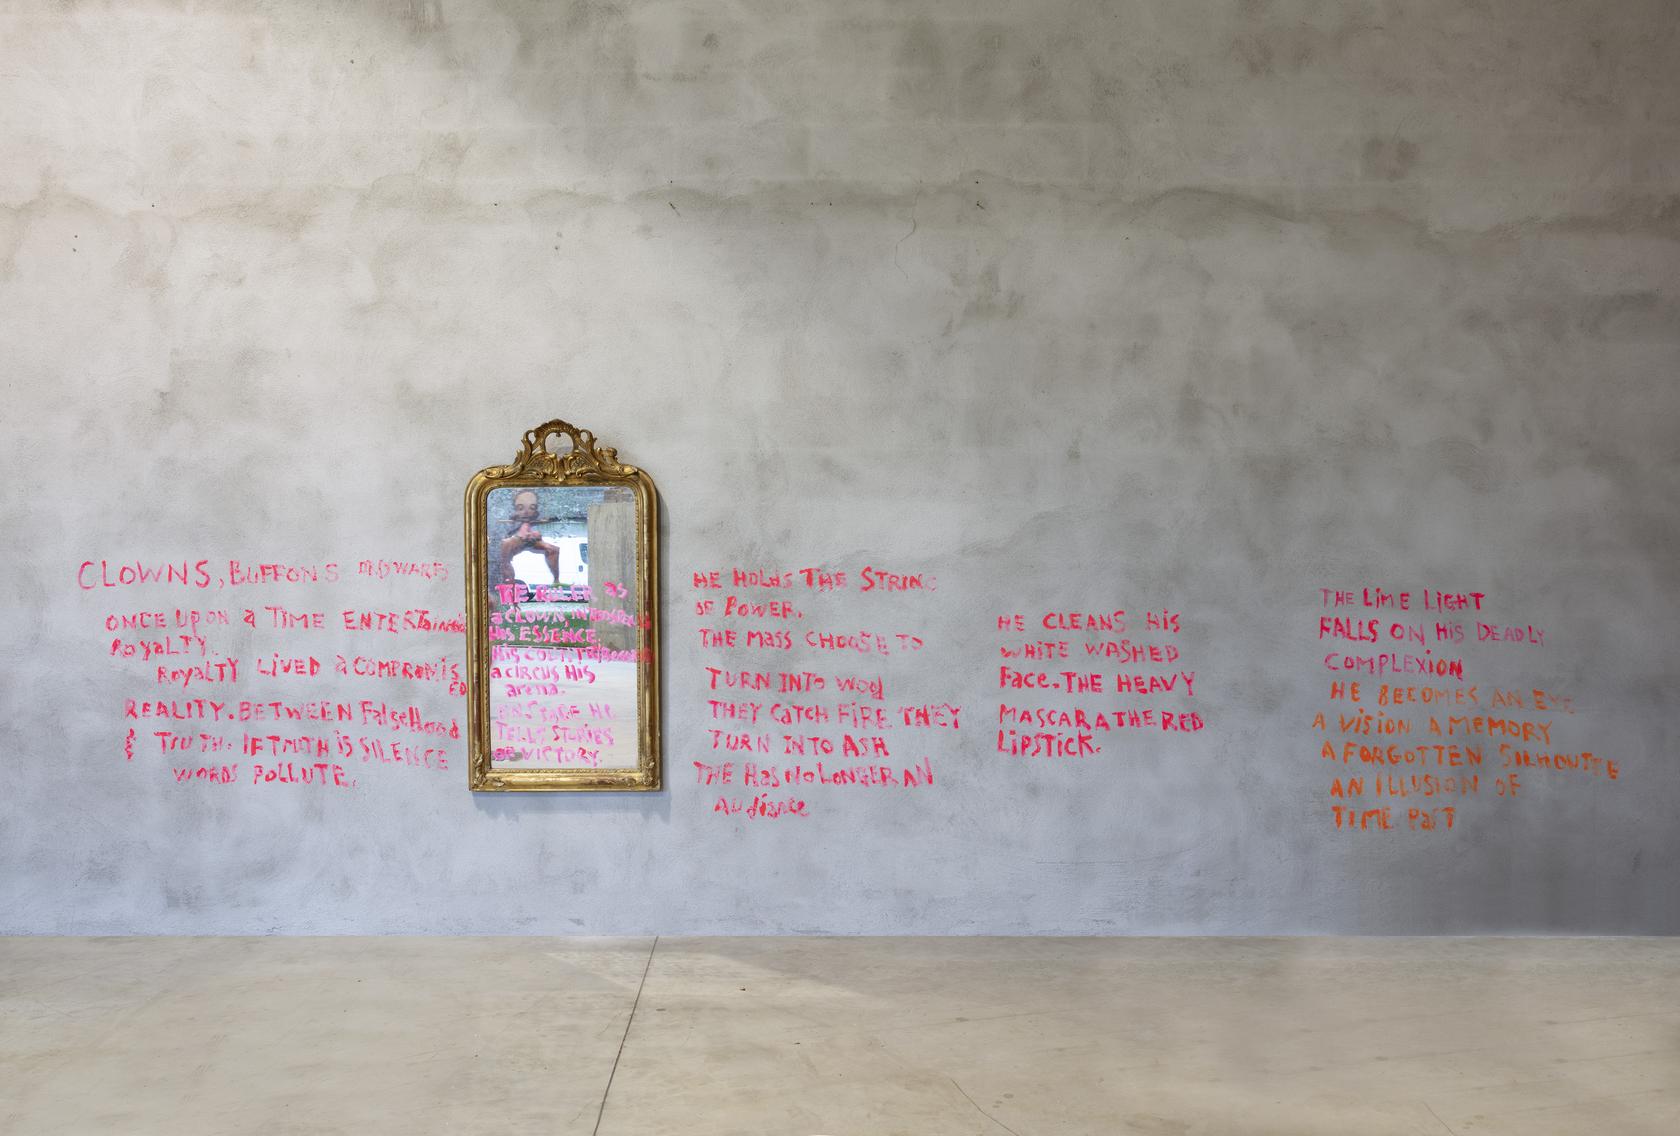 CLOWNS, BUFFONS
ONCE UPON a TIME ENTERTained
RoyaLTY.
RoyaLTY LIVED a COMPROMIS
ED
REALITY. BETWEEN FalseHood
& TRUTH. IF TRUTH iS SILENCE
WORDS POLLUTE.
THE RULER as
a CLOWN,
HIS ESSENCE.
HiS
a CIRCUS HIS
arena.
ON STAGE HE
TELLS STORIES
OF VICTORY.
HE HOLDS THE STRING
OF POWER.
THE MASS CHOOSE TO
TURN INTO WOOd
THEY CatCH FIRE THEY
TURN INTO ASH
THE Has No LONGER AN
AUdience
HE CLEANS HiS
WHITE WASHED
Face. THE HEAVY
MASCARA THE RED
LiPSTiCK.
THE LiME LiGHT
FALLS ON HiS DEADLY
COMPLEXiON
HE BECOMES AN EYE
A VISION A MEMORY
A FORGOTTEN SILHOUTTE
AN ILLUSION OF
TIME PaST